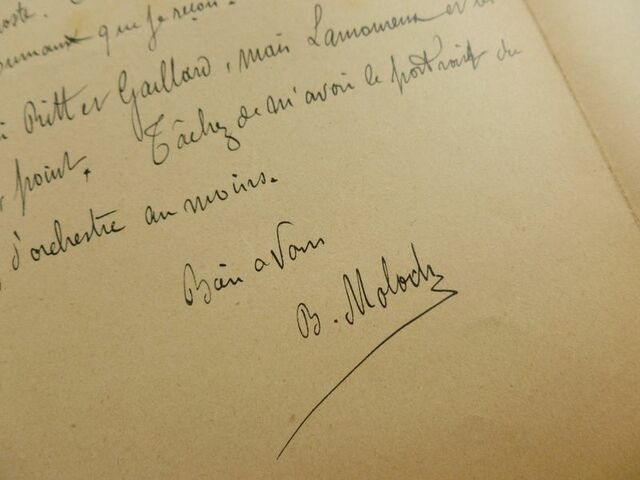 oste.
journaux que je reçois.
i Ritt et Gailhard, mais Lamoureux et les
point. Tâchez de m'avoir le portrait du
d'orchestre au moins.
Bien a vous
B. Moloch